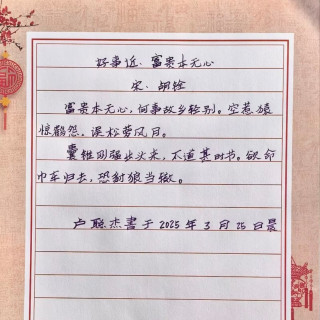 好事近·富贵本无心
宋·胡铨
富贵本无心,何事故乡轻别。空惹猿
惊鹤怨,误松萝风月。
囊锥刚强出头来,不道甚时节。欲命
巾车归去,恐豺狼当辙。
卢聪杰書于2025年3月25日晨